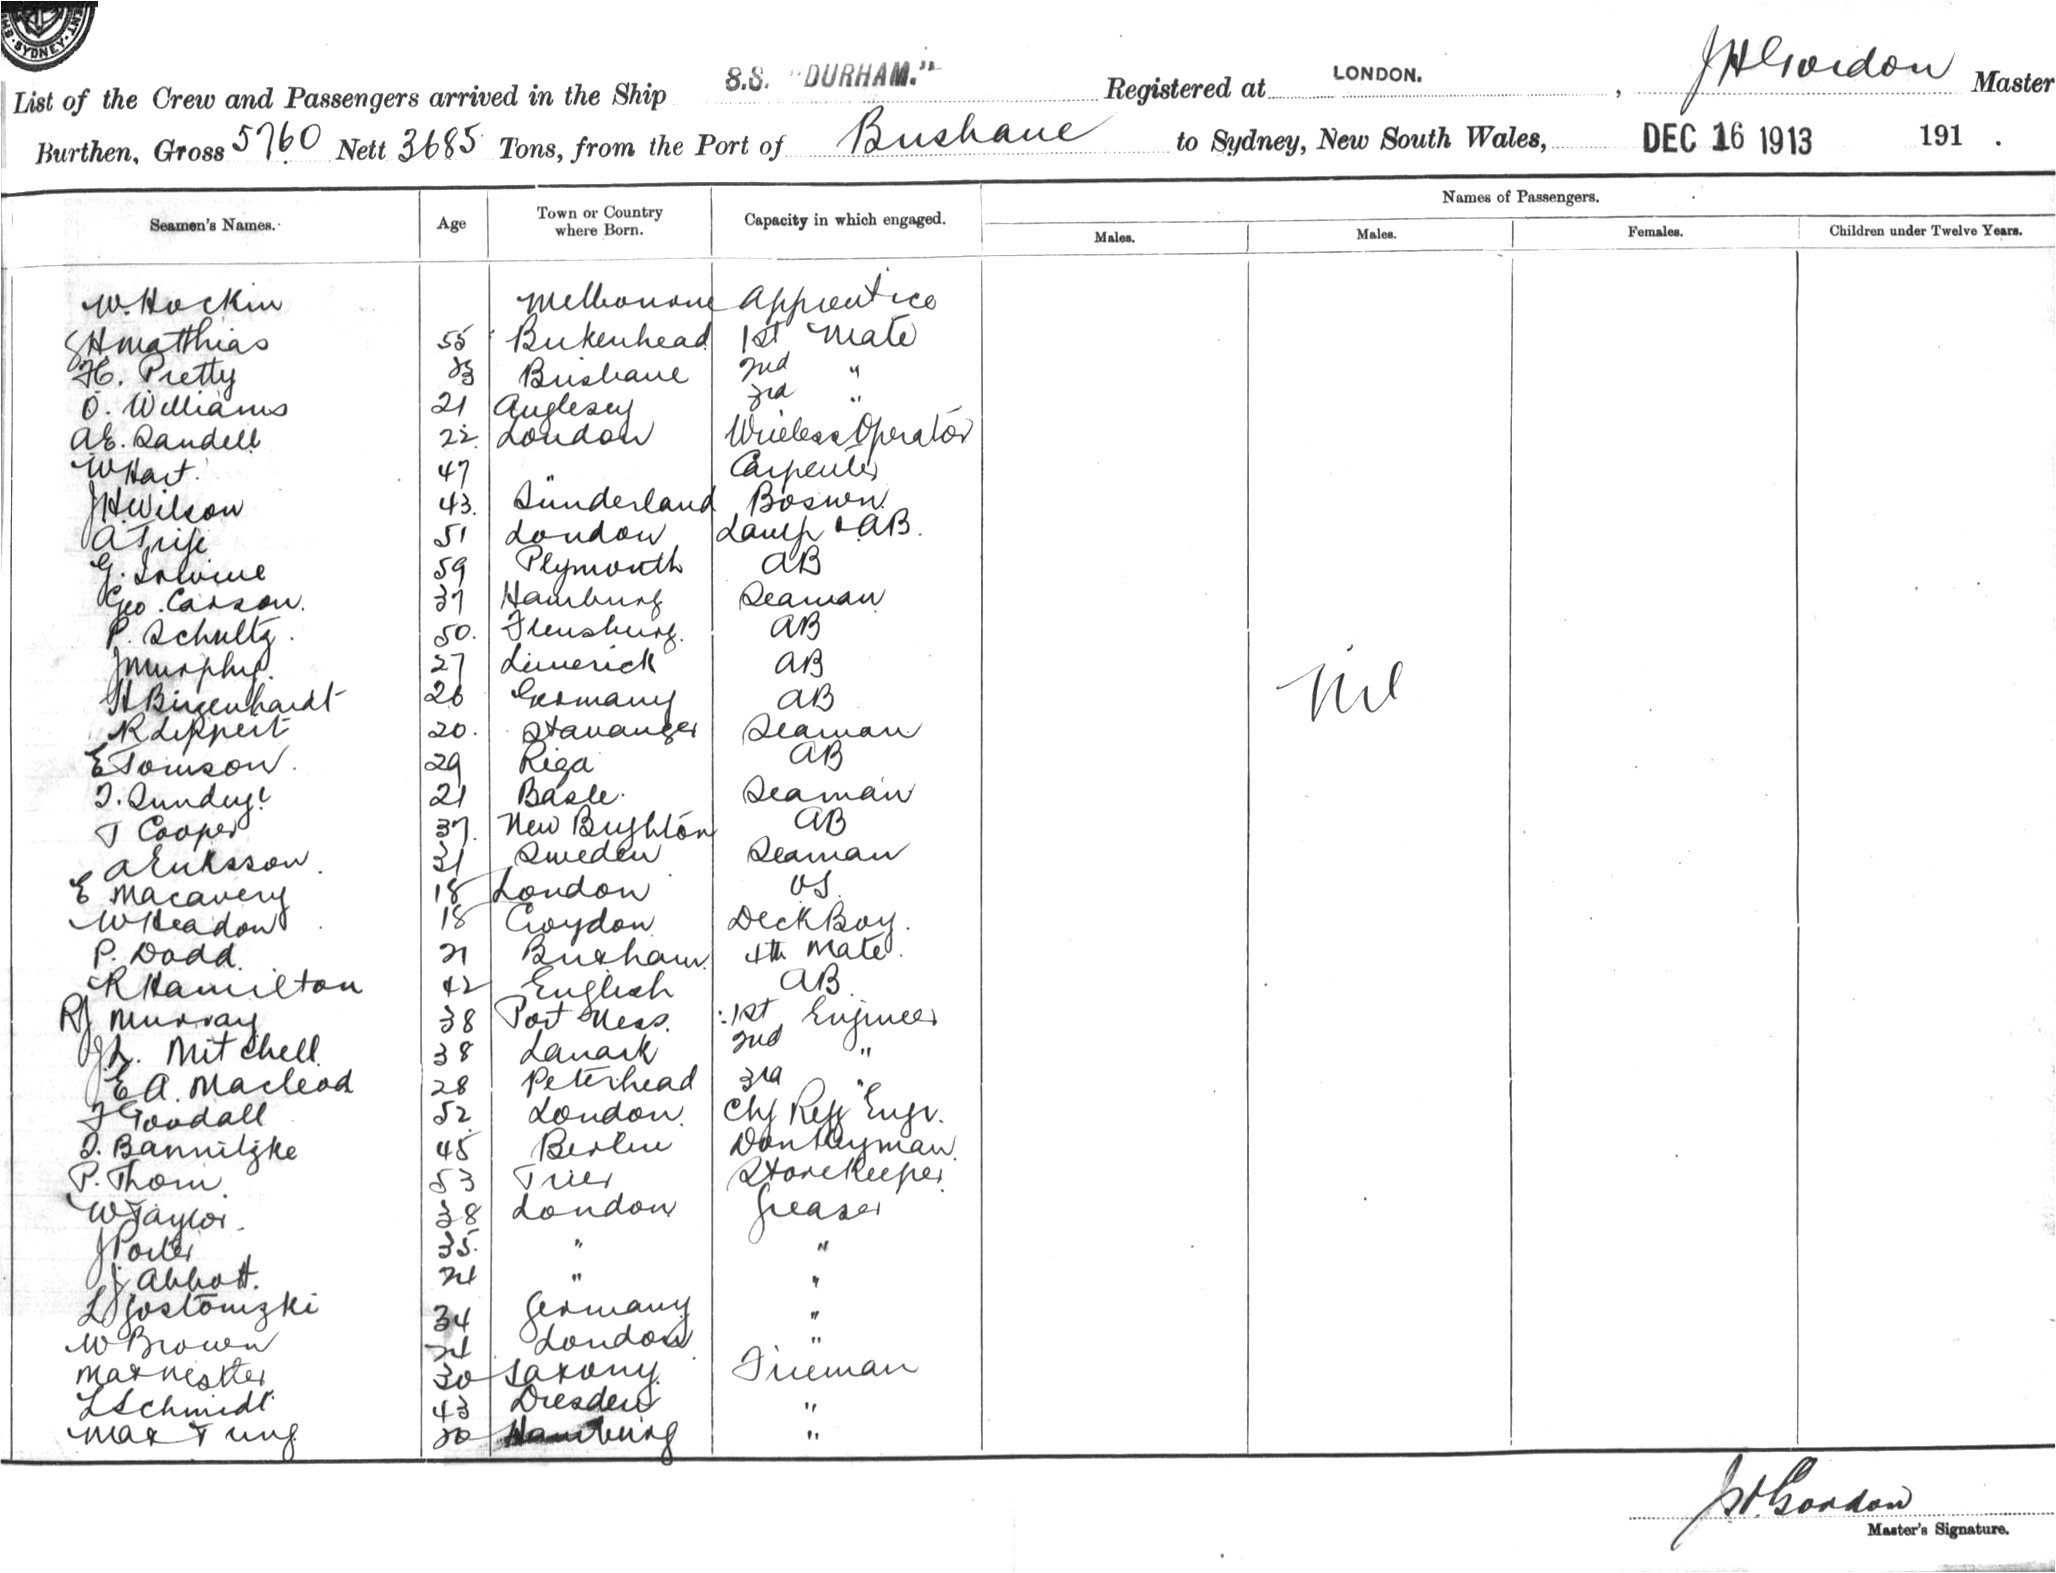 SYDNEY
S.S. "DURHAM." LONDON. J H Gordon
List of the Crew and Passengers arrived in the Ship Registered at , Master
Burthen, Gross 5760 Nett 3685 Tons, from the Port of Brisbane to Sydney, New South Wales, DEC 16 1913 191 .
Names of Passengers.
Seamen's Names. Age Town or Country where Born. Capacity in which engaged. Males. Males. Females. Children under Twelve Years.
W. Hockin Melbourne Apprentice
H Matthias 55 Birkenhead 1st Mate
H. Pretty Brisbane 2nd "
O. Williams 21 Anglesey 3rd "
A.E. Randell 22. London Wireless Operator
W Hart 47 " Carpenter
J H Wilson 43. Sunderland Boswn
A 51 London Lamp & AB.
G. Irvine 59 Plymouth AB
Geo. Carson. 37 Hamburg Seaman
P. Schultz. 50. Flensburg. AB
J Murphy. 27 Limerick AB
H Birgenhardt 26 Germany AB
R Lippert 20. Stavanger Seaman
E Tomson. 29 Riga AB
21 Basle. Seaman
T Cooper 37. New Brighton AB
A Eriksson. 31 Sweden Seaman
E Macavery 18 London OS.
W Headon 18 Croydon Deck Boy.
P. Dodd. 21 Brixham. 4th Mate.
R Hamilton 42 English AB.
RJ Murray 38 Port Ness. 1st Engineer
J L. Mitchell 38 Lanark 2nd "
E A. Macleod 28 Peterhead 3rd "
F Goodall 52 London. Chf Refr Engr.
45 Berlin Donkeyman.
P. Thom. 53 Trier Storekeeper
W Taylor. 38 London Greaser
J Porter 35. " "
J Abbott. 24 " "
L Gostomzki 34 Germany "
W Brown 24 London "
Max Nestler 30 Saxony. Fireman
L Schmidt 43 Dresden "
Max Tung 30 Hamburg "
Nil
J H. Gordon
Master's Signature.